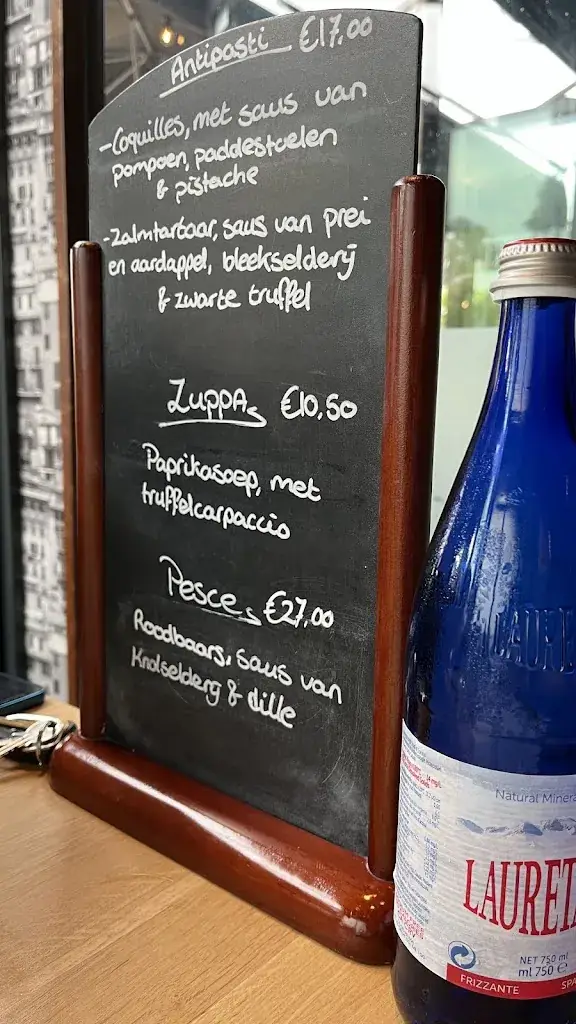 Antipasti €17,00
-Coquilles, met saus van
pompoen, paddestoelen
& pistache
-Zalmtartaar, saus van prei
en aardappel, bleekselderij
& zwarte truffel
Zuppa €10,50
Paprikasoep, met
truffelcarpaccio
Pesce €27,00
Roodbaars, saus van
Knolselderij & dille
Natural Minera
LAURET
NET 750 ml
ml 750 e
FRIZZANTE SPA